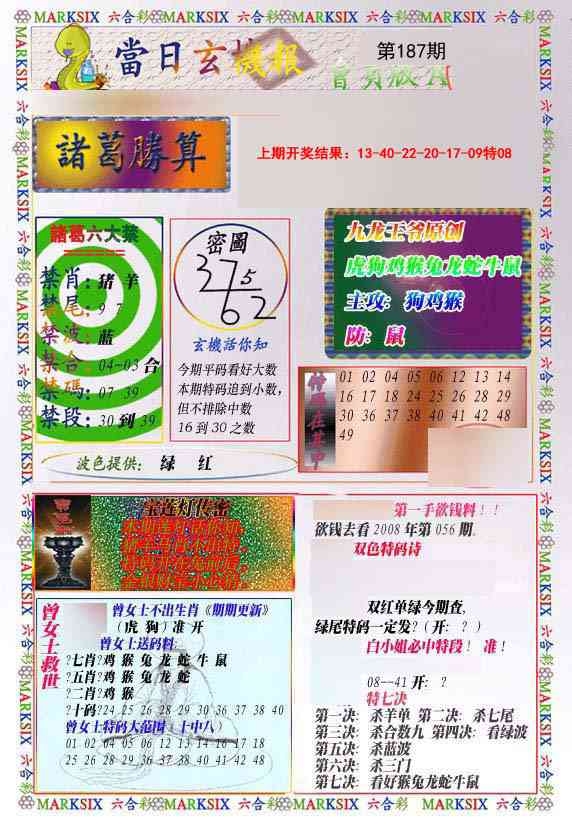 MARKSIX 六合彩 MARKSIX 六合彩 MARKSIX 六合彩 MARKSIX
當日玄機報
第187期
諸葛勝算
上期开奖结果：13-40-22-20-17-09特08
諸葛六大禁
禁肖：猪 羊
禁尾：9 7
禁波：蓝
禁合：04-03 合
禁碼：07 39
禁段：30 到 39
密圖
37 5
62
玄機話你知
今期平码看好大数
本期特码追到小数，
但不排除中数
16 到 30 之数
九龙王爷原创
虎狗鸡猴兔龙蛇牛鼠
主攻：狗鸡猴
防：鼠
特碼在其中
01 02 04 05 06 12 13 14
16 17 18 24 25 26 28 29
30 36 37 38 40 41 42 48
49
波色提供： 绿 红
宝莲灯传密
第一手欲钱料！！
欲钱去看 2008 年第 056 期.
双色特码诗
双红单绿今期查，
绿尾特码一定发？(开：？)
白小姐必中特段！ 准！
08--41 开：?
特七决
第一决：杀羊单 第二决：杀七尾
第三决：杀合数九 第四决：看绿波
第五决：杀蓝波
第六决：杀三门
第七决：看好猴兔龙蛇牛鼠
曾女士救世
曾女士不出生肖《期期更新》
(虎 狗) 准 开
曾女士送码料:
?七肖?鸡 猴 兔 龙 蛇 牛 鼠
?五肖?鸡 猴 兔 龙 蛇
?二肖?鸡 猴
?十码?24 25 26 28 29 30 36 37 38 40
曾女士特码大范围〈十中八〉
01 02 04 05 06 12 13 14 16 17 18
25 26 28 29 30 36 37 38 40 41 42 48
MARKSIX 六合彩 MARKSIX 六合彩 MARKSIX 六合彩 MARKSIX